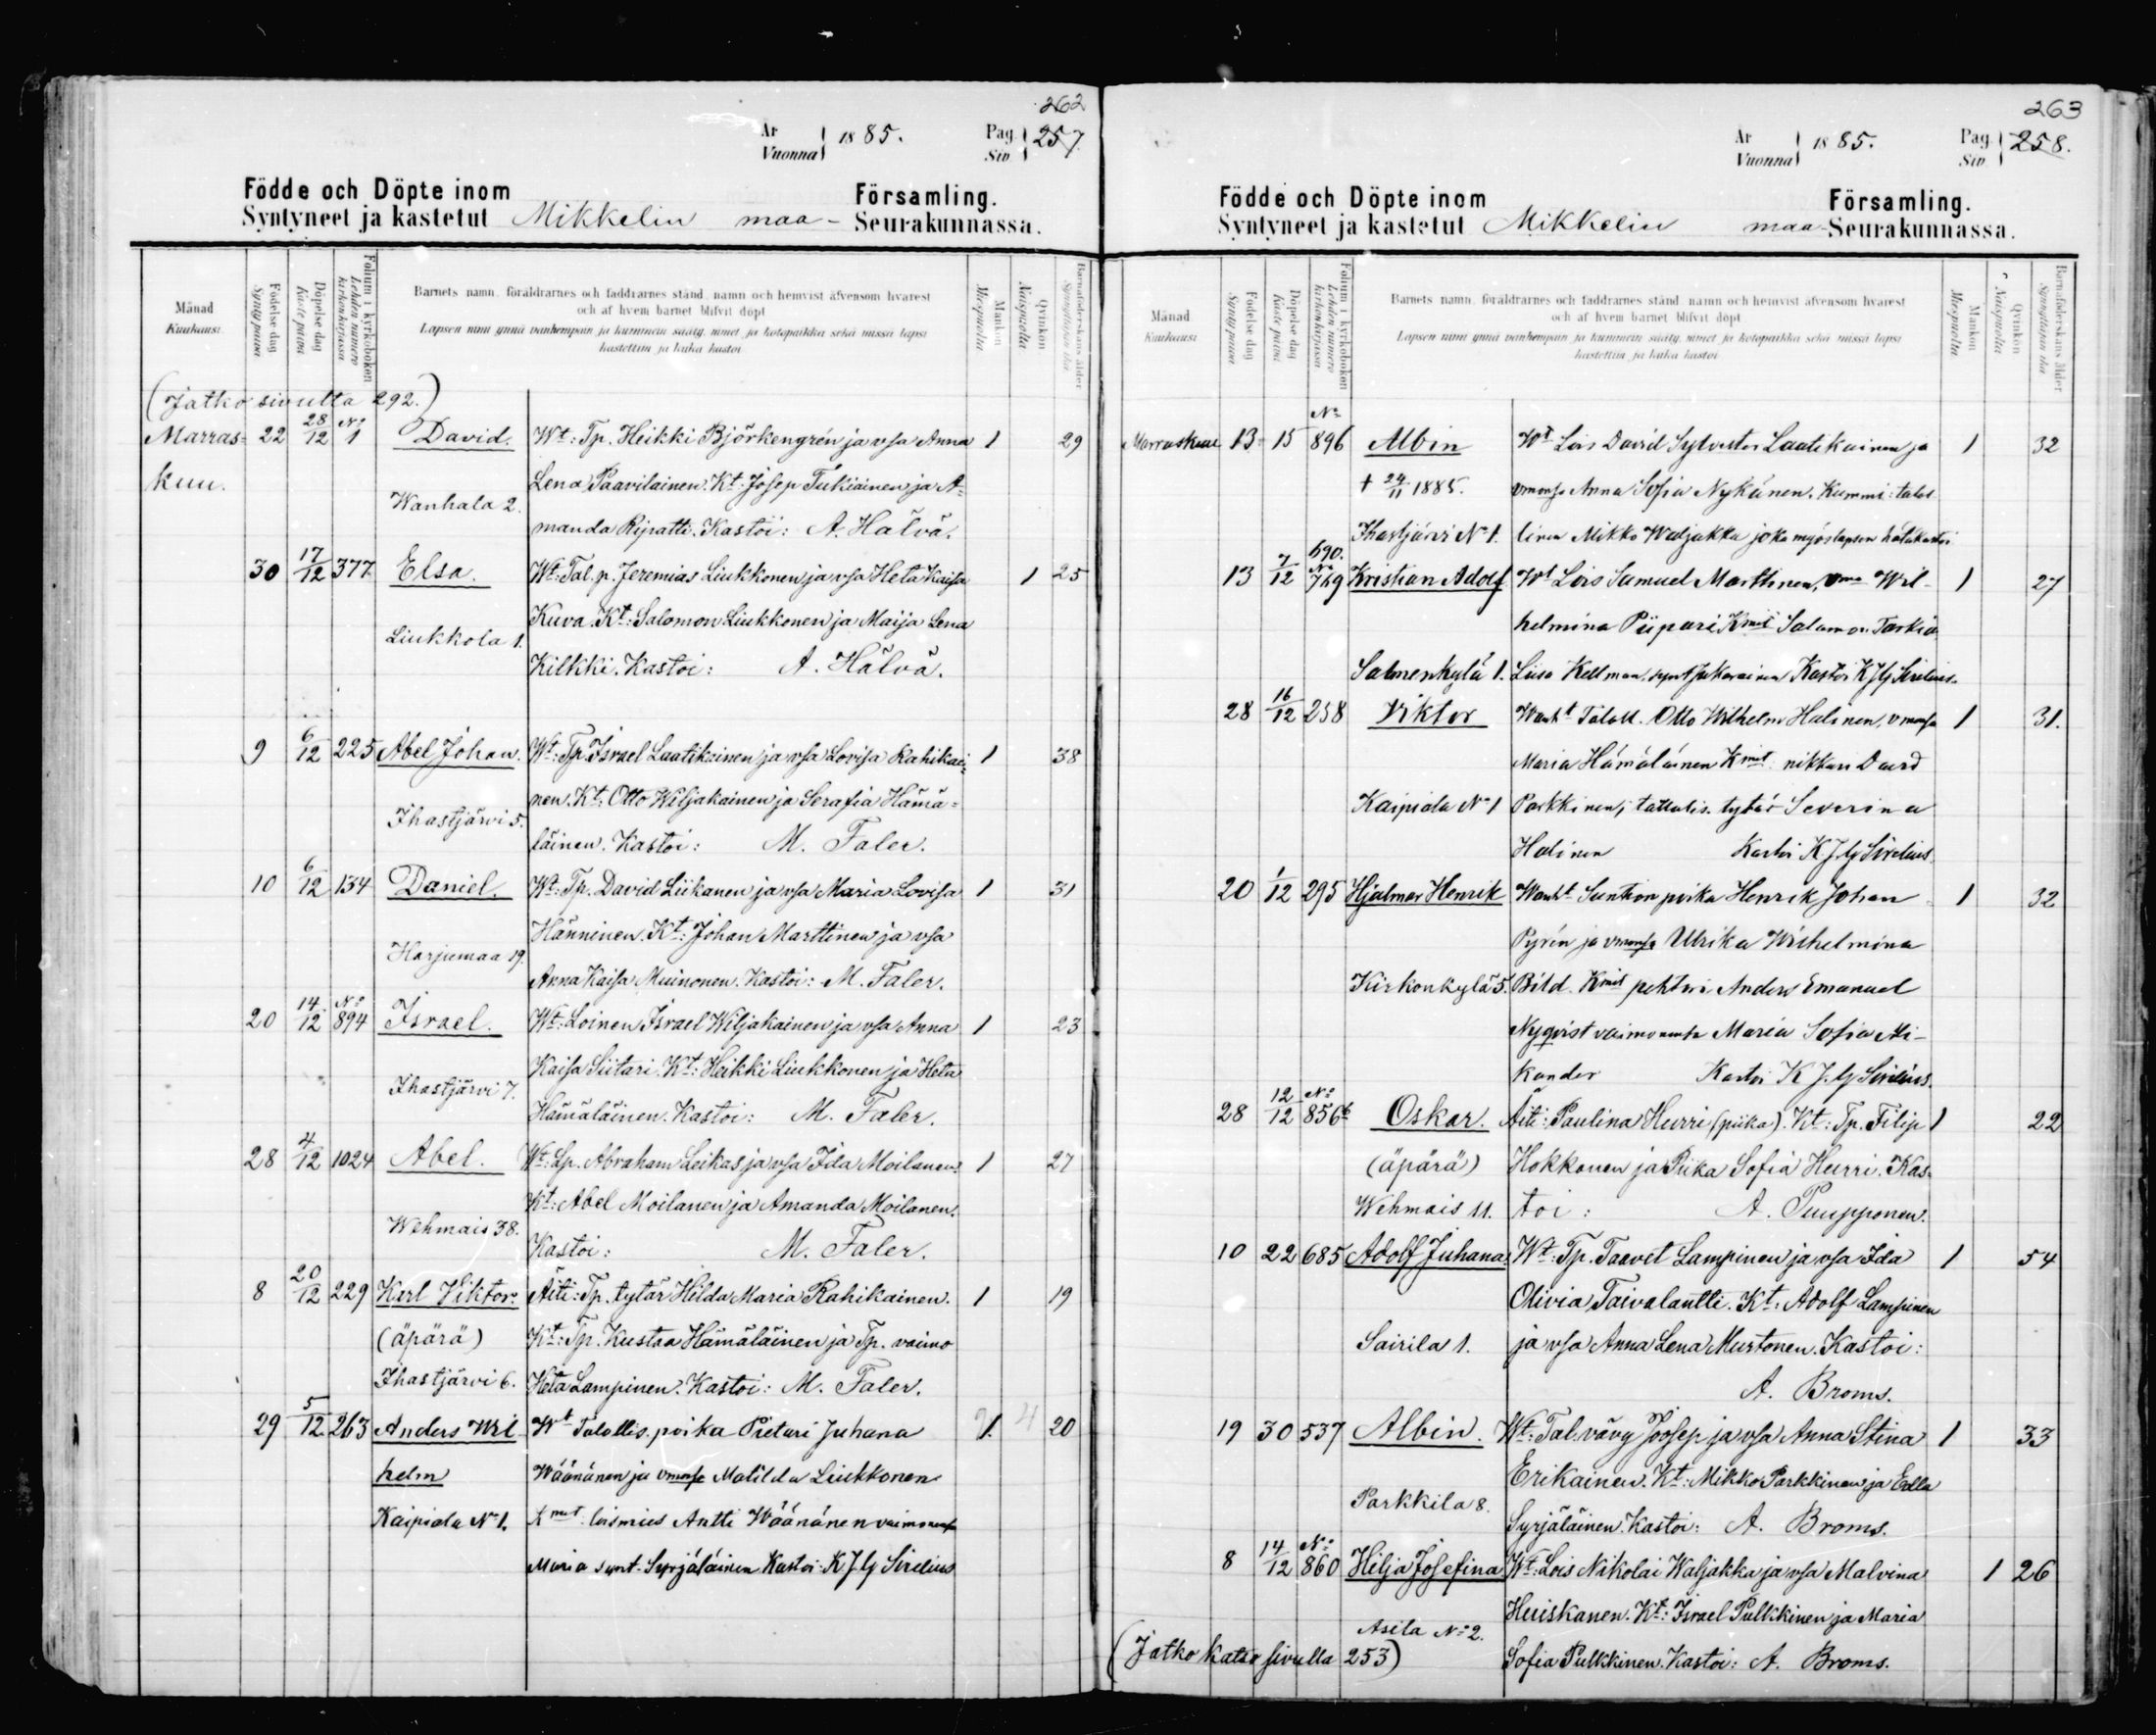 262
År
Vuonna 1885. Pag. Siv 257.
Födde och Döpte inom Församling.
Syntyneet ja kastetut Mikkelin maa- Seurakunnassa.
Månad
Kuukausi
Födelse dag
Synty päivä
Döpelse dag
Kaste päivä
Folium i kyrkoboken
Lehden numero kirkonkirjassa
Barnets namn, föräldrarnes och faddrarnes stånd, namn och hemvist äfvensom hvarest
och af hvem barnet blifvit döpt
Lapsen nimi ynnä vanhempain ja kummein sääty, nimet ja kotopaikka sekä missä lapsi
kastettiin ja kuka kastoi
Mankön
Miespuolta
Qvinkön
Naispuolta
Barnaföderskans ålder
Synnyttäjän ikä
(Jatko sivulta 292.)
Marras- 22 28/12 No 1 David. Wt: Tp. Heikki Björkengrén ja vsa Anna 1 29
kuu. Lena Paavilainen. Kt: Josep Tukiainen ja A-
Wanhala 2. manda Ripatti. Kastoi: A. Hälvä.
30 17/12 377 Elsa. Wt: Tal. p. Jeremias Liukkonen ja vsa Heta Kaisa 1 25
Kuva. Kt: Salomon Liukkonen ja Maija Lena
Liukkola 1. Kilkki. Kastoi: A. Hälvä.
9 6/12 225 Abel Johan. Wt: Tp. Israel Laatikainen ja vsa Lovisa Rahikai- 1 38
nen. Kt: Otto Wiljakainen ja Serafia Hämä-
Ihastjärvi 5. läinen. Kastoi: M. Faler.
10 6/12 134 Daniel. Wt: Tp. David Liikanen ja vsa Maria Lovisa 1 31
Hänninen. Kt: Johan Marttinen ja vsa
Harjumaa 19. Anna Kaisa Muinonen. Kastoi: M. Faler.
20 14/12 No 894 Israel. Wt: Loinen Israel Wiljakainen ja vsa Anna 1 23
Kaisa Siitari. Kt: Heikki Liukkonen ja Heta
Ihastjärvi 7. Hämäläinen. Kastoi: M. Faler.
28 4/12 1024 Abel. Wt: Lp. Abraham Leikas ja vsa Ida Moilanen. 1 27
Kt: Abel Moilanen ja Amanda Moilanen.
Wehmais 38. Kastoi: M. Faler.
8 20/12 229 Karl Viktor. Äiti: Tp. tytär Hilda Maria Rahikainen. 1 19
(äpärä) Kt: Tp. Kustaa Hämäläinen ja Tp. vaimo
Ihastjärvi 6. Heta Lampinen. Kastoi: M. Faler.
29 5/12 263 Anders Wil- Wt Talollis. poika Pietari Juhana 1. 4 20
helm Wäänänen ja vmonsa Matilda Liukkonen
Kaipiala No 1. Kmit loismies Antti Wäänänen vaimonensa
Maria synt. Syrjäläinen Kastoi: K J G Sirelius
263
År
Vuonna 1885. Pag. Siv 258.
Födde och Döpte inom Församling.
Syntyneet ja kastetut Mikkelin maa- Seurakunnassa.
Månad
Kuukausi
Födelse dag
Synty päivä
Döpelse dag
Kaste päivä
Folium i kyrkoboken
Lehden numero kirkonkirjassa
Barnets namn, föräldrarnes och faddrarnes stånd, namn och hemvist äfvensom hvarest
och af hvem barnet blifvit döpt
Lapsen nimi ynnä vanhempain ja kummein sääty, nimet ja kotopaikka sekä missä lapsi
kastettiin ja kuka kastoi
Mankön
Miespuolta
Qvinkön
Naispuolta
Barnaföderskans ålder
Synnyttäjän ikä
Marraskuu 13 15 No 896 Albin Wt Lois David Sylvester Laatikainen ja 1 32
† 24/11 1885. vmonsa Anna Sofia Nykänen. Kummi: talol
Ihastjärvi No 1. linen Mikko Waljakka joka myös lapsen hätäkastoi
13 7/12 690. No 769 Kristian Adolf Wt Lois Samuel Marttinen, vmo Wil- 1 27
helmina Piipari Kmit Salamon Tarkia
Salmenkylä 1. Liisa Kellman, synt Kastoi K J G Sirelius.
28 16/12 258 Viktor Wanht Taloll. Otto Wilhelm Halinen, vmonsa 1 31.
Maria Hämäläinen Kmit nikkari David
Kaipiala No 1 Parkkinen, tallalis. tytär Severina
Halinen Kastoi K J G Sirelius
20 1/12 295 Hjalmar Henrik Wanht Suntion poika Henrik Johan 1 32
Pyrén ja vmonsa Ulrika Wilhelmina
Kirkonkylä 5. Bild. Kmit pehtori Anders Emanuel
Nyqvist vaimonensa Maria Sofia Ni-
kander Kastoi K J G Sirelius.
28 12/12 No 856b Oskar. Äiti: Paulina Hurri (piika). Kt: Tp. Filip 1 22
(äpärä) Hokkonen ja Piika Sofia Hurri. Kas-
Wehmais 11. toi: A. Puupponen.
10 22 685 Adolf Juhana. Wt: Tp. Taavet Lampinen ja vsa Ida 1 54
Olivia Taivalantti. Kt: Adolf Lampinen
Sairila 1. ja vsa Anna Lena Murtonen. Kastoi:
A. Broms.
19 30 537 Albin. Wt: Tal. vävy Joosep ja vsa Anna Stina 1 33
Erikainen. Kt: Mikko Parkkinen ja Eella
Parkkila 8. Syrjäläinen. Kastoi: A. Broms.
8 14/12 No 860 Hilja Josefina Wt: Lois Nikolai Waljakka ja vsa Malvina 1 26
Huiskanen. Kt: Israel Pulkkinen ja Maria
Asila No 2.
(Jatko katso sivulla 253) Sofia Pulkkinen. Kastoi: A. Broms.